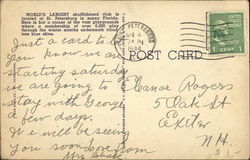 WORLD'S LARGEST shuffleboard club is
located at St. Petersburg in sunny Florida.
Here is but a corner of the vast playgrounds
where a membership of over 5,000 play
through the winter months underneath cloud-
less blue skies.
POST CARD
Just a card to let
you know we are
starting saturday
we are going to
stay with George
a few days.
we will be seeing
you soon Love from
Mrs
Eleanor Rogers
5 Oak St
Exeter
N.H.